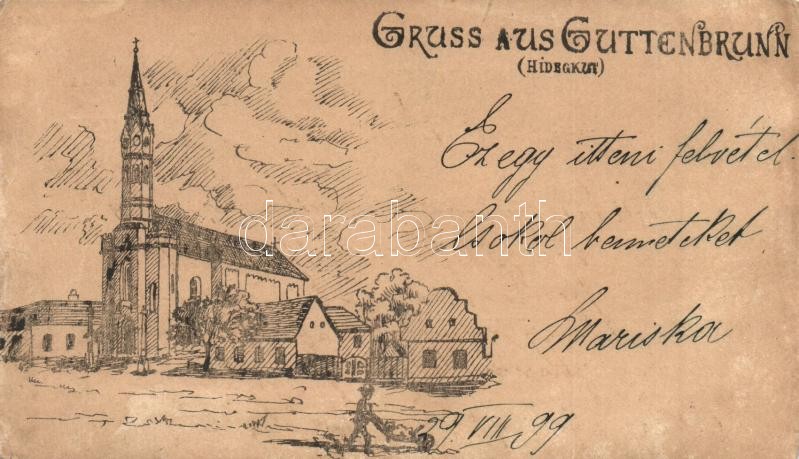 GRUSS AUS GUTTENBRUNN
(HIDEGKUT)
Ez egy itteni felvétel.
Csókol benneteket
Mariska
29. VIII 99
darabanth